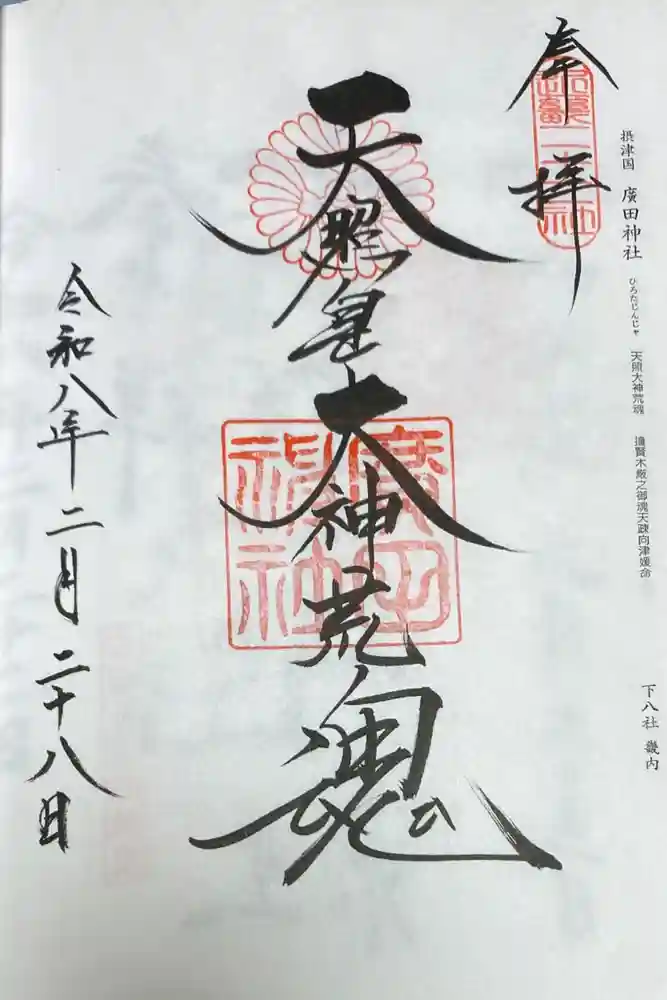 摂津国 廣田神社 ひろたじんじゃ 天照大神荒魂 撞賢木厳之御魂天疎向津媛命 下八社 畿内
奉拝
二十二社
天照皇大神荒魂
廣田神社
令和八年二月二十八日